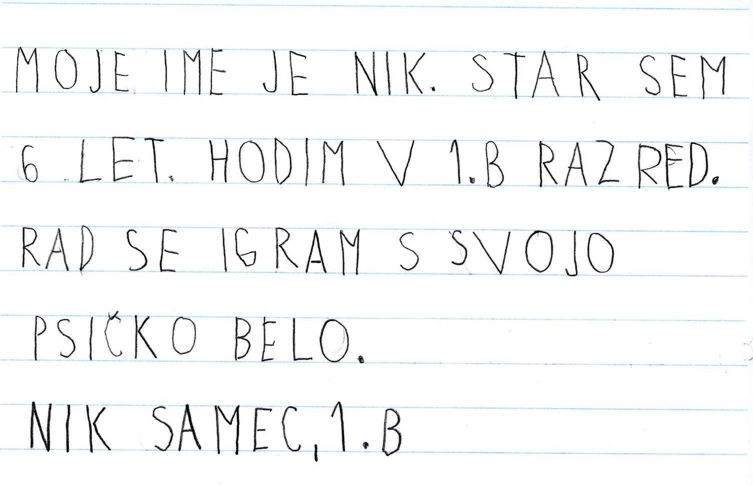 MOJE IME JE NIK. STAR SEM
6 LET. HODIM V 1.B RAZRED.
RAD SE IGRAM S SVOJO
PSIČKO BELO.
NIK SAMEC, 1.B